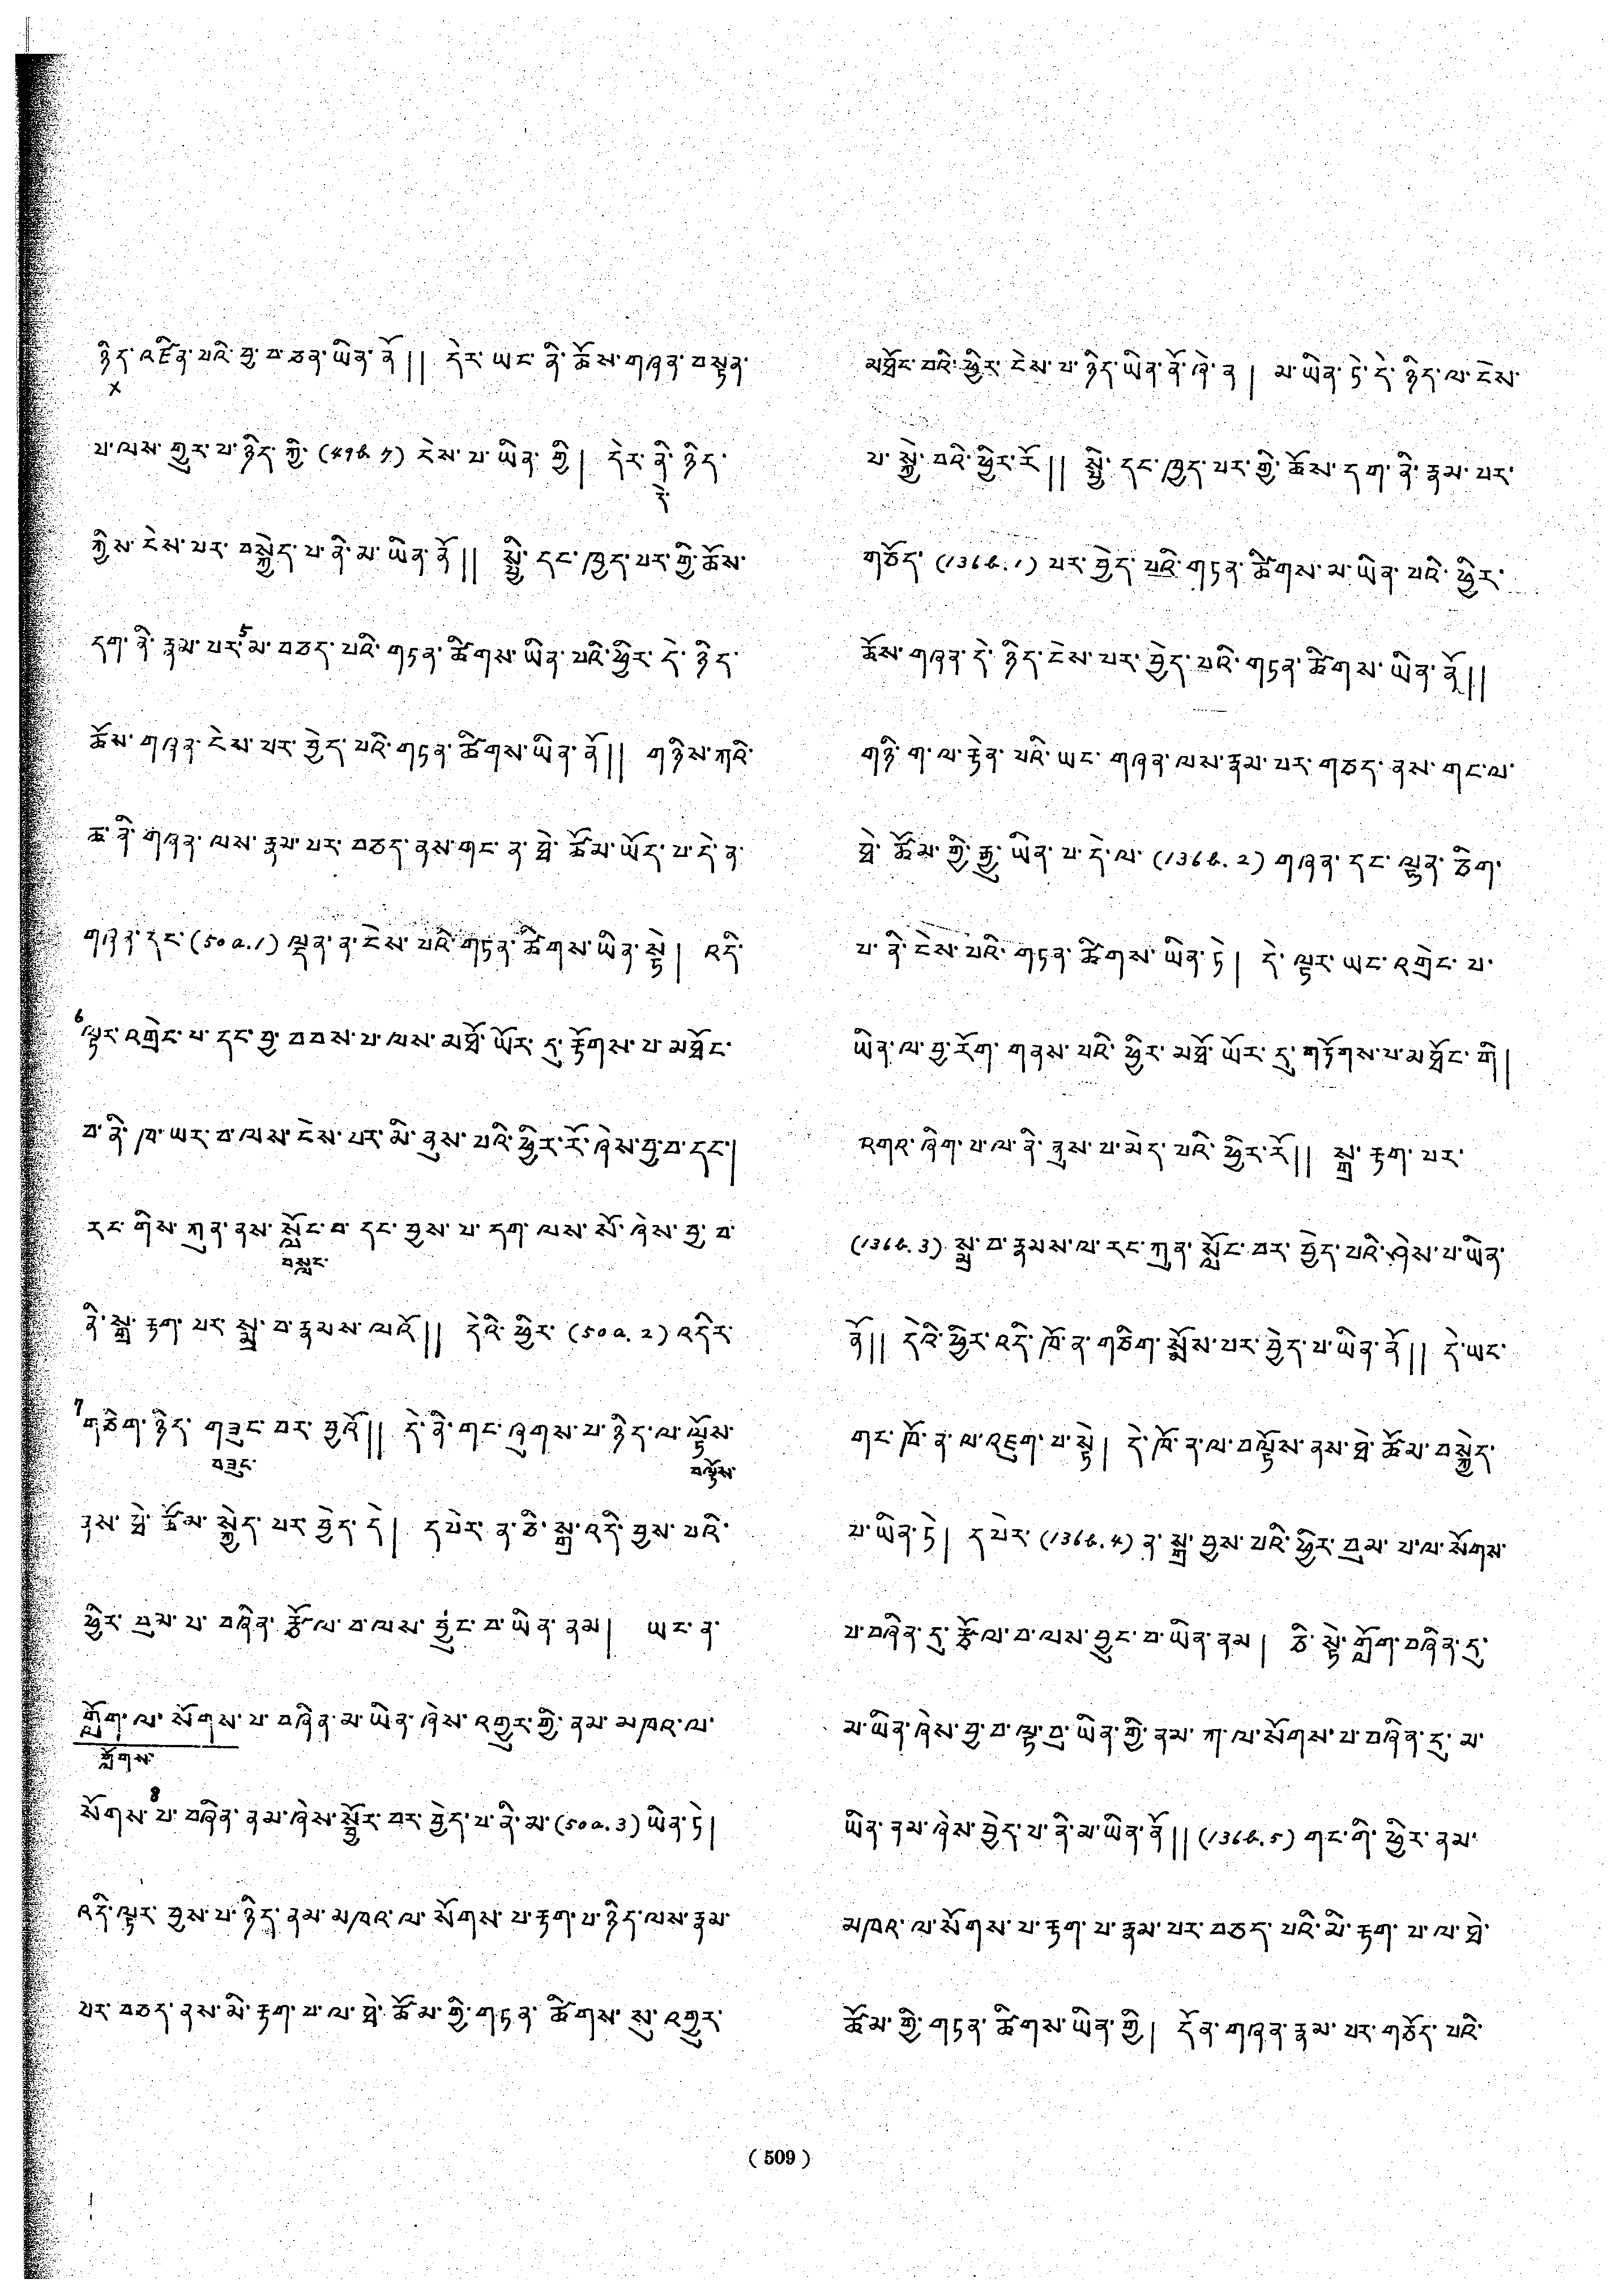 ཉིད་འཛིན་པའི་བྱ་བ་ཅན་ཡིན་ནོ།། དེར་ཡང་ནི་ཆོས་གཞན་བསྟན་
x
པ་ལས་གྱུར་པ་ཉིད་ཀྱི་ (49b.7) ངེས་པ་ཡིན་གྱི། དེར་ནི་ཉིད་
དེ་
ཀྱིས་ངེས་པར་བསྐྱེད་པ་ནི་མ་ཡིན་ནོ།། སྤྱི་དང་ཁྱད་པར་གྱི་ཆོས་
དག་ནི་རྣམ་པར་5མ་བཅད་པའི་གཏན་ཚིགས་ཡིན་པའི་ཕྱིར་དེ་ཉིད་
ཆོས་གཞན་ངེས་པར་བྱེད་པའི་གཏན་ཚིགས་ཡིན་ནོ།། གཉིས་ཀའི་
ཆ་ནི་གཞན་ལས་རྣམ་པར་བཅད་ནས་གང་ན་ཐེ་ཚོམ་ཡོད་པ་དེ་ན་
གཞན་དང་(50a.1) ལྡན་ན་ངེས་པའི་གཏན་ཚིགས་ཡིན་ཏེ། འདི་
6ལྟར་འགྲེང་པ་དང་བྱ་བབས་པ་ལས་མཐོ་ཡོར་དུ་རྟོགས་པ་མཐོང་
བ་ནི་ཁ་ཡར་བ་ལས་ངེས་པར་མི་ནུས་པའི་ཕྱིར་རོ་ཞེས་བྱ་བ་དང་།
རང་གིས་ཀུན་ནས་སློང་བ་དང་བྱས་པ་དག་ལས་སོ་ཞེས་བྱ་བ་
བསླང་
ནི་སྒྲ་རྟག་པར་སྨྲ་བ་རྣམས་ལའོ།། དེའི་ཕྱིར་ (50a.2) འདིར་
7གཅིག་ཉིད་གཟུང་བར་བྱའོ།། དེ་ནི་གང་ཞུགས་པ་ཉིད་ལ་ལྟོས་
བཟུང་ བལྟོས་
ནས་ཐེ་ཚོམ་སྐྱེད་པར་བྱེད་དེ། དཔེར་ན་ཅི་སྒྲ་འདི་བྱས་པའི་
ཕྱིར་བུམ་པ་བཞིན་རྩོལ་བ་ལས་བྱུང་བ་ཡིན་ནམ། ཡང་ན་
གློག་ལ་སོགས་པ་བཞིན་མ་ཡིན་ཞེས་འགྱུར་གྱི་ནམ་མཁའ་ལ་
ཀློགས་
སོགས་8པ་བཞིན་ནམ་ཞེས་སྦྱོར་བར་བྱེད་པ་ནི་མ་(50a.3) ཡིན་ཏེ།
འདི་ལྟར་བྱས་པ་ཉིད་ནམ་མཁའ་ལ་སོགས་པ་རྟག་པ་ཉིད་ལས་རྣམ་
པར་བཅད་ནས་མི་རྟག་པ་ལ་ཐེ་ཚོམ་གྱི་གཏན་ཚིགས་སུ་འགྱུར་
མཐོང་བའི་ཕྱིར་ངེས་པ་ཉིད་ཡིན་ནོ་ཞེ་ན། མ་ཡིན་ཏེ་དེ་ཉིད་ལ་ངེས་
པ་སྐྱེ་བའི་ཕྱིར་རོ།། སྤྱི་དང་ཁྱད་པར་གྱི་ཆོས་དག་ནི་རྣམ་པར་
གཅོད་ (136b.1) པར་བྱེད་པའི་གཏན་ཚིགས་མ་ཡིན་པའི་ཕྱིར་
ཆོས་གཞན་དེ་ཉིད་ངེས་པར་བྱེད་པའི་གཏན་ཚིགས་ཡིན་ནོ།།
གཉི་ག་ལ་རྟེན་པའི་ཡང་གཞན་ལས་རྣམ་པར་གཅད་ནས་གང་ལ་
ཐེ་ཚོམ་གྱི་རྒྱུ་ཡིན་པ་དེ་ལ་ (136b.2) གཞན་དང་ལྷན་ཅིག་
པ་ནི་ངེས་པའི་གཏན་ཚིགས་ཡིན་ཏེ། དེ་ལྟར་ཡང་འགྲེང་པ་
ཡིན་ལ་བྱ་རོག་གནས་པའི་ཕྱིར་མཐོ་ཡོར་དུ་གཏོགས་པ་མཐོང་གི།
འགའ་ཞིག་པ་ལ་ནི་ནུས་པ་མེད་པའི་ཕྱིར་རོ།། སྒྲ་རྟག་པར་
(136b.3) སྨྲ་བ་རྣམས་ལ་རང་ཀུན་སློང་བར་བྱེད་པའི་ཤེས་པ་ཡིན་
ནོ།། དེའི་ཕྱིར་འདི་ཁོ་ན་གཅིག་སྨོས་པར་བྱེད་པ་ཡིན་ནོ།། དེ་ཡང་
གང་ཁོ་ན་ལ་འཇུག་པ་སྟེ། དེ་ཁོ་ན་ལ་བལྟོས་ནས་ཐེ་ཚོམ་བསྐྱེད་
པ་ཡིན་ཏེ། དཔེར་ (136b.4) ན་སྒྲ་བྱས་པའི་ཕྱིར་བུམ་པ་ལ་སོགས་
པ་བཞིན་དུ་རྩོལ་བ་ལས་བྱུང་བ་ཡིན་ནམ། ཅི་སྟེ་གློག་བཞིན་དུ་
མ་ཡིན་ཞེས་བྱ་བ་ལྟ་བུ་ཡིན་གྱི་ནམ་ཀ་ལ་སོགས་པ་བཞིན་དུ་མ་
ཡིན་ནམ་ཞེས་བྱེད་པ་ནི་མ་ཡིན་ནོ།། (136b.5) གང་གི་ཕྱིར་ནམ་
མཁའ་ལ་སོགས་པ་རྟག་པ་རྣམ་པར་བཅད་པའི་མི་རྟག་པ་ལ་ཐེ་
ཚོམ་གྱི་གཏན་ཚིགས་ཡིན་གྱི། དོན་གཞན་རྣམ་པར་གཅོད་པའི་
( 509 )